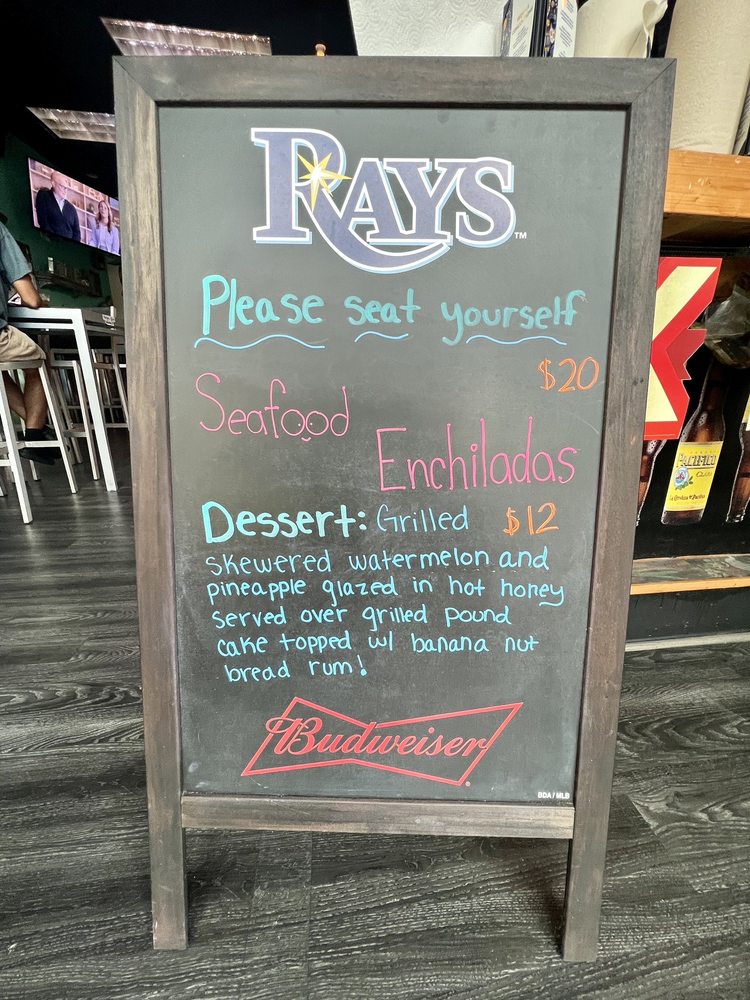 RAYS
TM
Please seat yourself
$20
Seafood
Enchiladas
Dessert: Grilled $12
skewered watermelon and
pineapple glazed in hot honey
served over grilled pound
cake topped w/ banana nut
bread rum!
Budweiser
BDA / MLB
PACIFICO